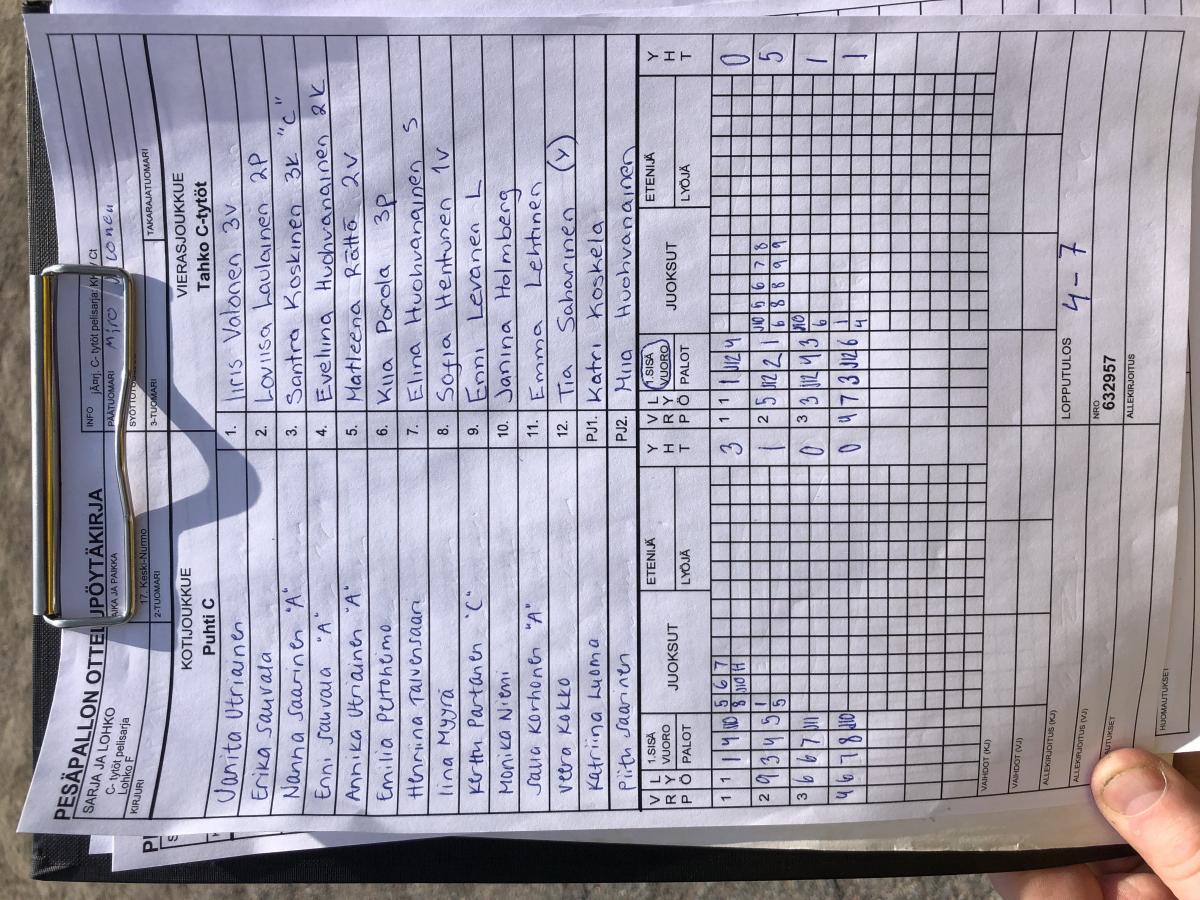 PESÄPALLON OTTELUPÖYTÄKIRJA
SARJA JA LOHKO
C- tytöt pelisarja
Lohko F
AIKA JA PAIKKA
17. Keski-Nurmo
INFO
C- tytöt pelisarja:
PÄÄTUOMARI
Miro
KIRJURI
2-TUOMARI
3-TUOMARI
TAKARAJATUOMARI
KOTIJOUKKUE
Puhti C
VIERASJOUKKUE
Tahko C-tytöt
Vanita Utriainen 1. Iiris Valonen 3v
Erika Sauvala 2. Loviisa Laulainen 2P
Nanna Saarinen "A" 3. Santra Koskinen 3K "C"
Enni Sauvala "A" 4. Eveliina Huohvanainen 2K
Annika Utriainen "A" 5. Matleena Rättö 2v
Emilia Peltoheimo 6. Kiia Porola 3P
Henniina Talvensaari 7. Elina Huohvanainen S
Iina Myyrä 8. Sofia Henttunen 1v
Kerttu Partanen "C" 9. Enni Levanen L
Monika Niemi 10. Janina Holmberg
Saila Korhonen "A" 11. Emma Lehtinen
Veera Kokko 12. Tia Saharinen (Y)
Katriina Luoma PJ1. Katri Koskela
Piitu Saarinen PJ2. Mia Huohvanainen
VRP LYÖ 1.SISÄ VUORO PALOT JUOKSUT ETENIJÄ LYÖJÄ YHT VRP LYÖ 1.SISÄ VUORO PALOT JUOKSUT ETENIJÄ LYÖJÄ YHT
1 1 1 4 J10 5 6 7 3 1 1 1 J12 4 0
8 J10 J11
2 9 3 4 5 1 1 2 5 J12 2 1 J10 5 6 7 8 5
5 6 8 8 9 9
3 6 6 7 J11 0 3 3 J12 4 3 J10 1
6
4 6 7 8 J10 0 4 7 3 J12 6 1 1
4
VAIHDOT (KJ)
VAIHDOT (VJ)
ALLEKIRJOITUS (KJ)
LOPPUTULOS 4-7
ALLEKIRJOITUS (VJ)
NRO
632957
ALLEKIRJOITUS
HUOMAUTUKSET